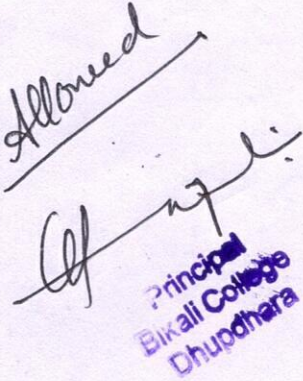 Allowed
Principal
Bikali College
Dhupdhara